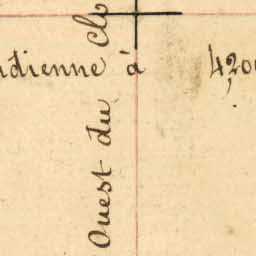 ndienne à 4,200
Ouest du Clo